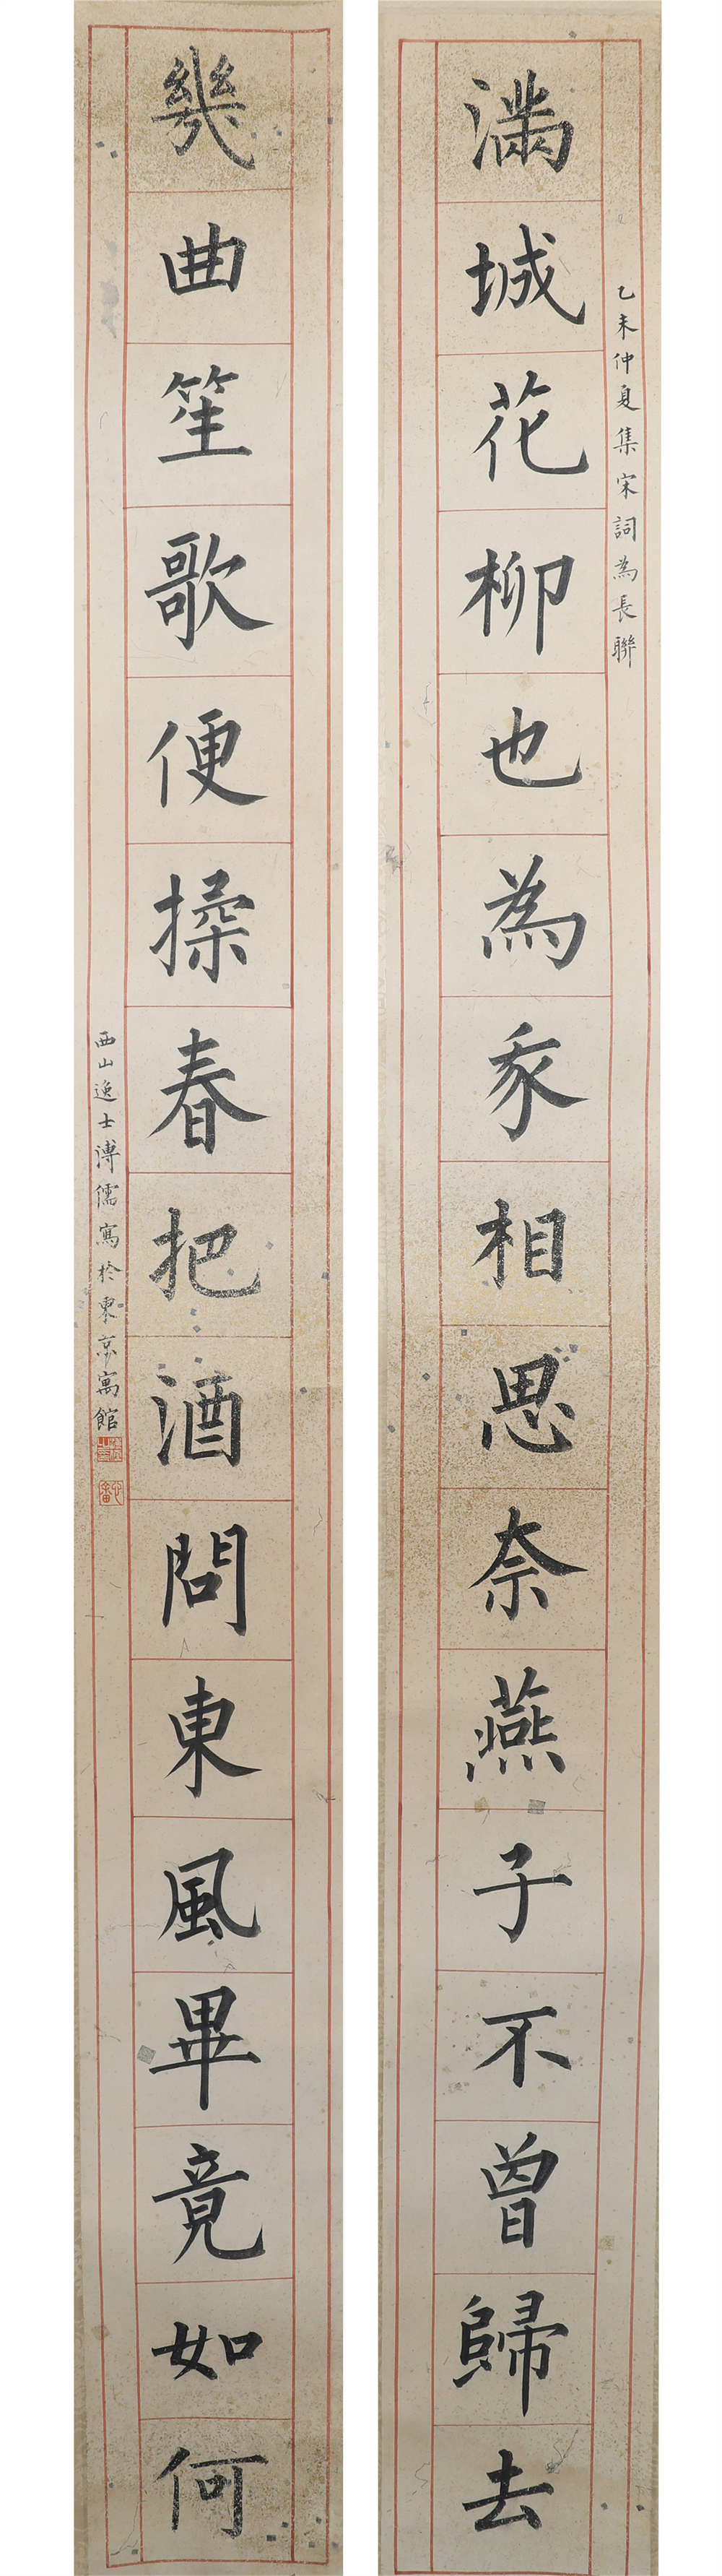 乙未仲夏集宋詞為長聯
滿城花柳也為我相思奈燕子不曾歸去
幾曲笙歌便探春把酒問東風畢竟如何
西山逸士溥儒寫於東京寓館